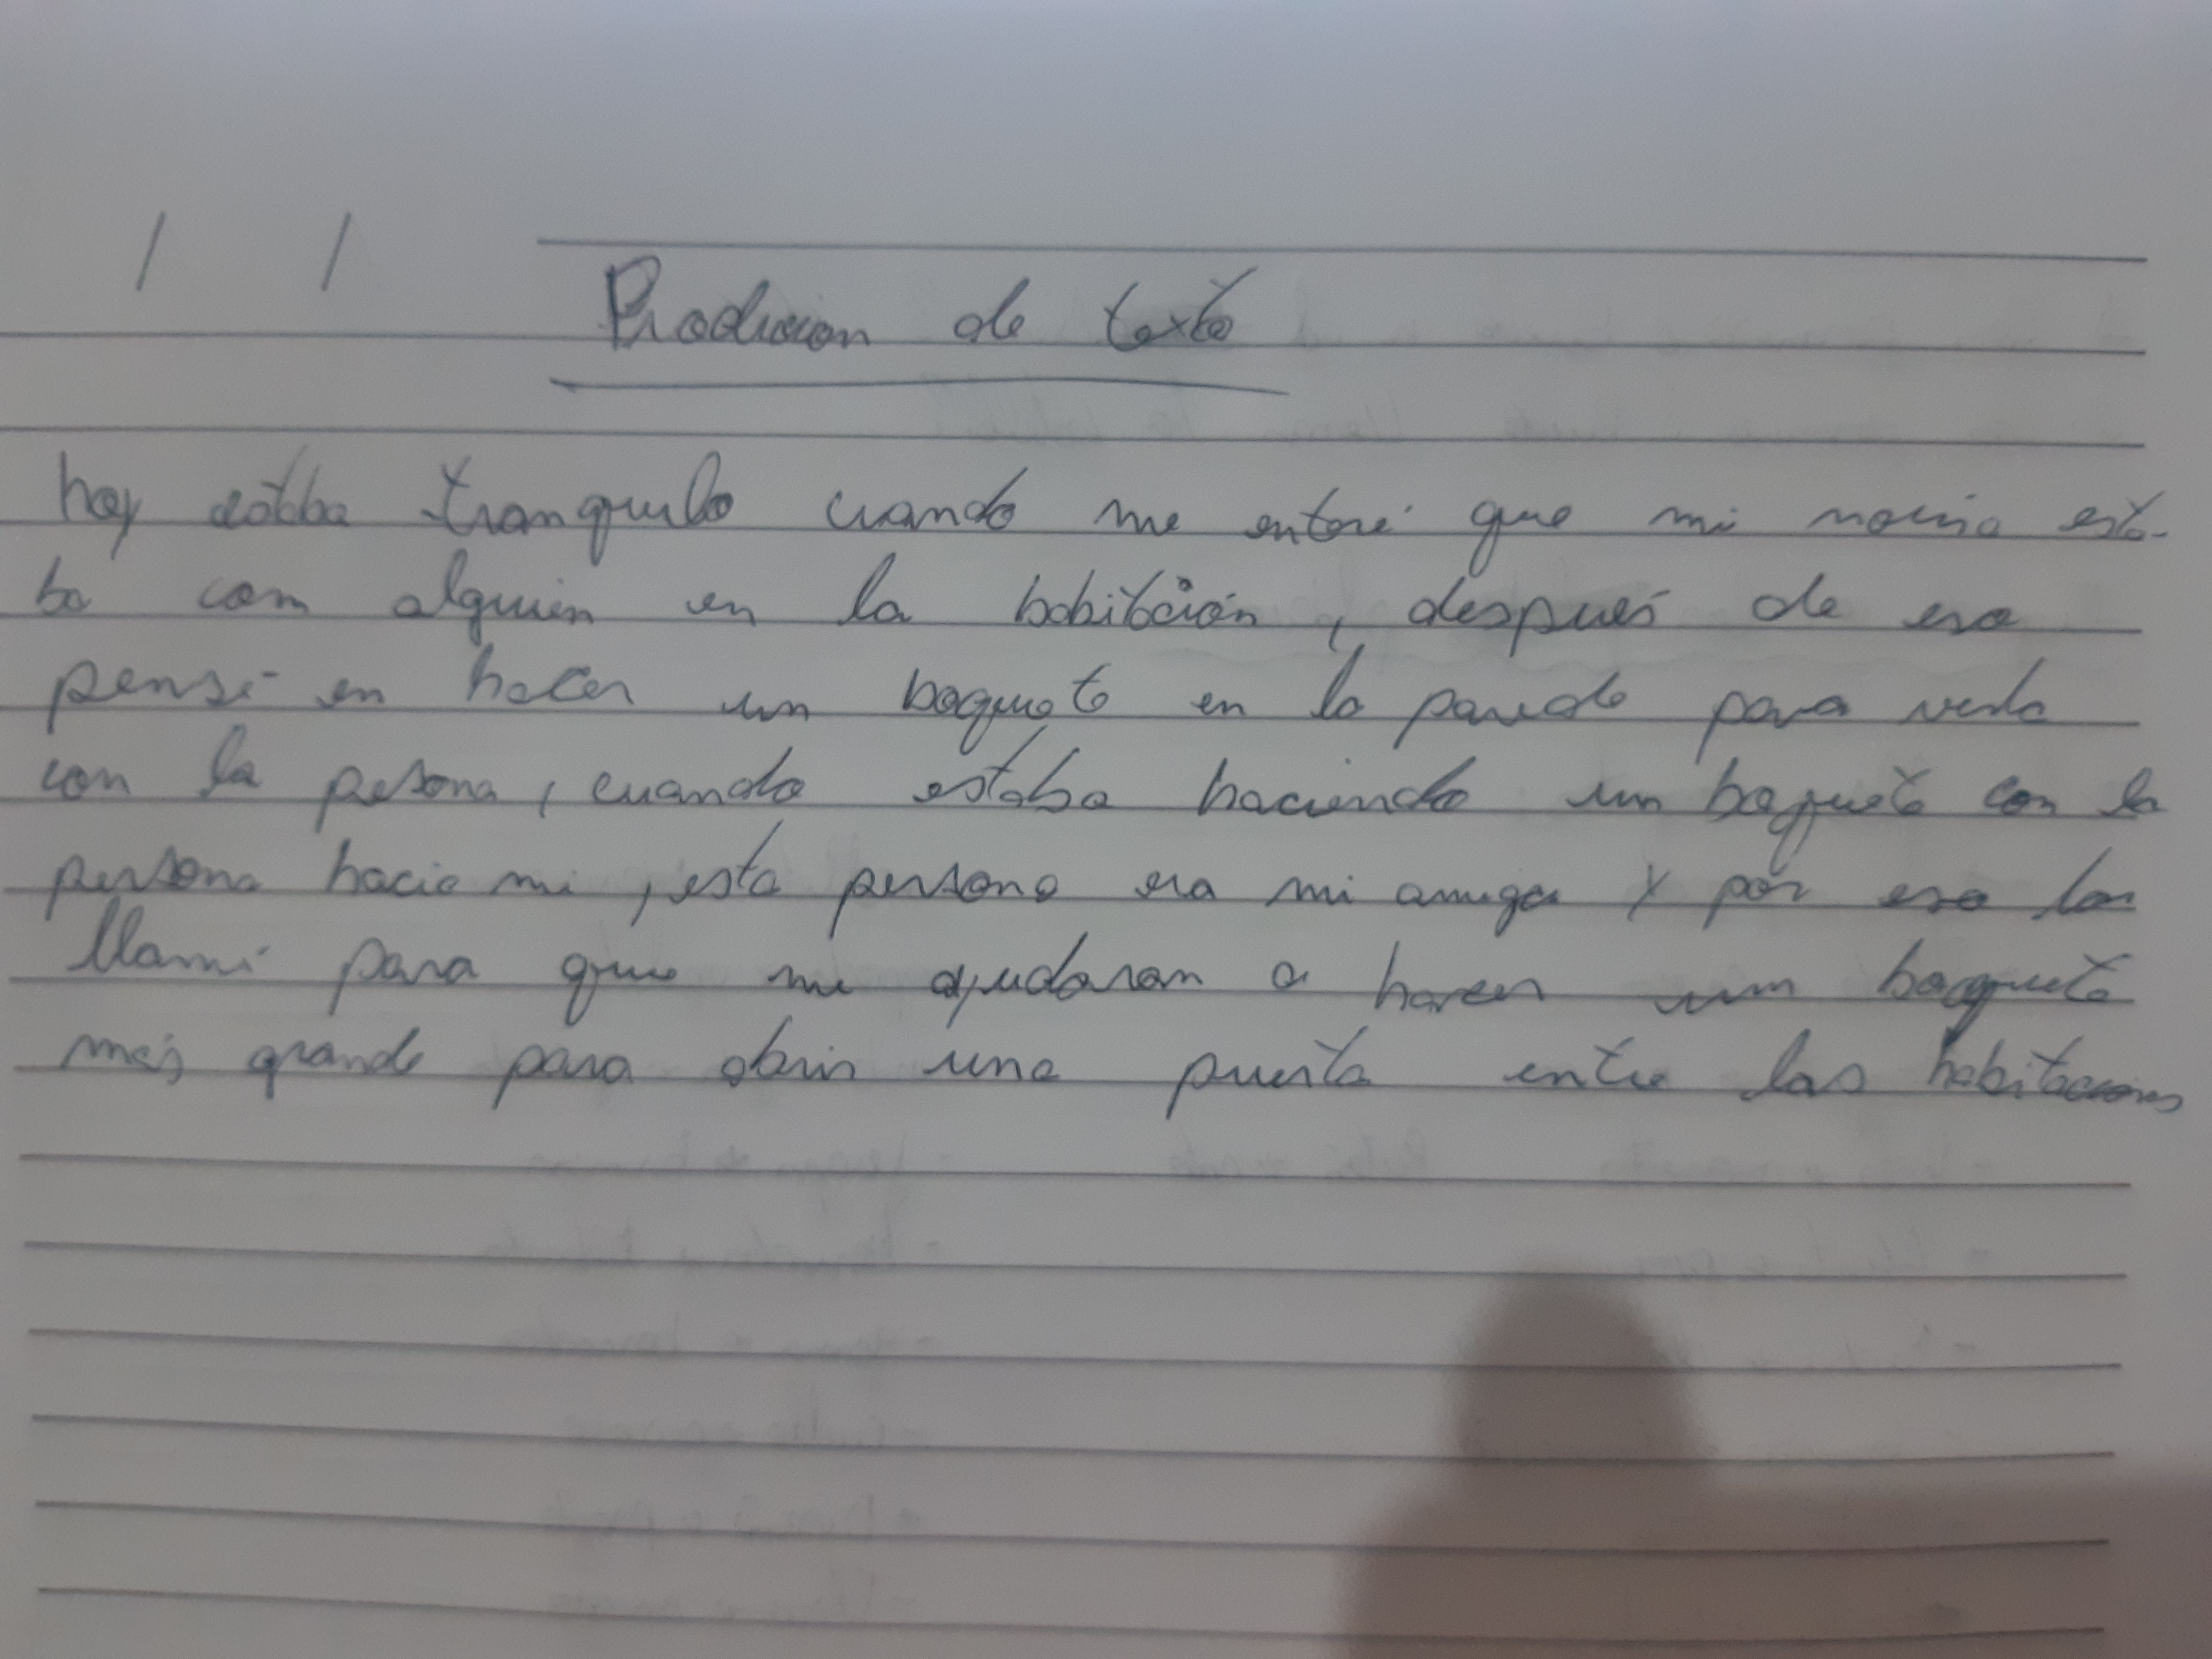 / /
Producion de texto
hoy estaba tranquilo cuando me enteré que mi novia esta-
ba com alguien en la habitación, después de eso
pensé en hacer un boquete en la parede para verla
con la pesona, cuando estaba haciendo un boquete con la
persona hacia mi, esta persona era mi amiga y por eso los
llamé para que me ajudaran a hacer um boquete
más grande para abrir una puerta entre las habitaciones